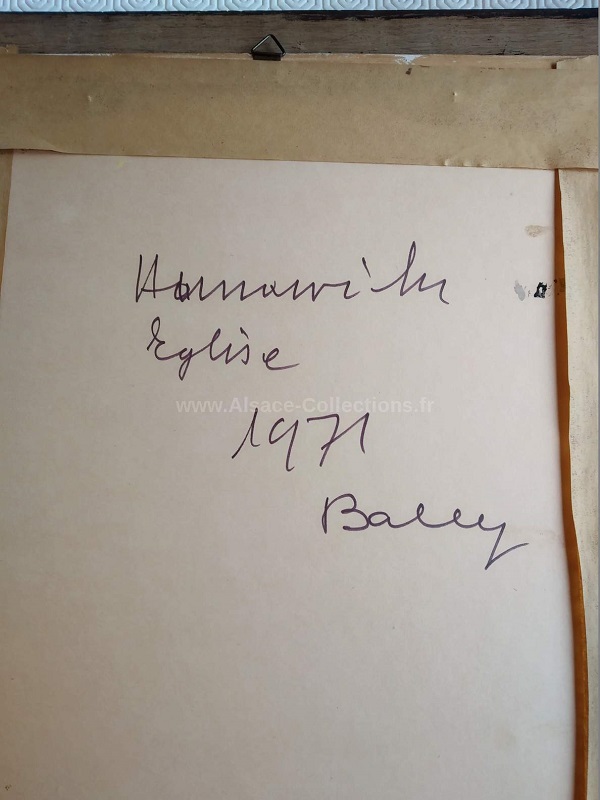 Eglise
www.Alsace-Collections.fr
1971
Bally